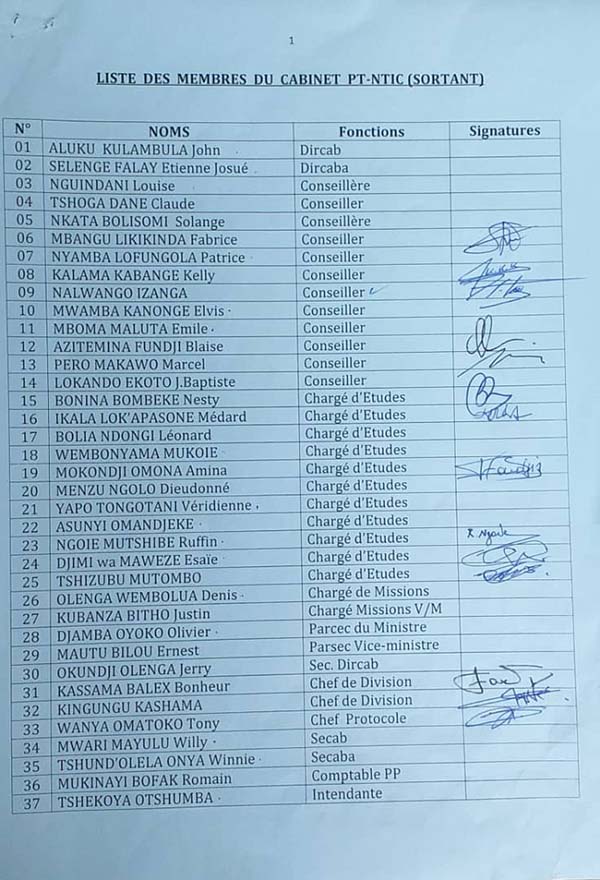 1
LISTE DES MEMBRES DU CABINET PT-NTIC (SORTANT)
N° NOMS Fonctions Signatures
01 ALUKU KULAMBULA John Dircab
02 SELENGE FALAY Etienne Josué Dircaba
03 NGUINDANI Louise Conseillère
04 TSHOGA DANE Claude Conseiller
05 NKATA BOLISOMI Solange Conseillère
06 MBANGU LIKIKINDA Fabrice Conseiller
07 NYAMBA LOFUNGOLA Patrice Conseiller
08 KALAMA KABANGE Kelly Conseiller
09 NALWANGO IZANGA Conseiller
10 MWAMBA KANONGE Elvis Conseiller
11 MBOMA MALUTA Emile Conseiller
12 AZITEMINA FUNDJI Blaise Conseiller
13 PERO MAKAWO Marcel Conseiller
14 LOKANDO EKOTO J.Baptiste Conseiller
15 BONINA BOMBEKE Nesty Chargé d'Etudes
16 IKALA LOK'APASONE Médard Chargé d'Etudes
17 BOLIA NDONGI Léonard Chargé d'Etudes
18 WEMBONYAMA MUKOIE Chargé d'Etudes
19 MOKONDJI OMONA Amina Chargé d'Etudes
20 MENZU NGOLO Dieudonné Chargé d'Etudes
21 YAPO TONGOTANI Véridienne Chargé d'Etudes
22 ASUNYI OMANDJEKE Chargé d'Etudes
23 NGOIE MUTSHIBE Ruffin Chargé d'Etudes
24 DJIMI wa MAWEZE Esaïe Chargé d'Etudes
25 TSHIZUBU MUTOMBO Chargé d'Etudes
26 OLENGA WEMBOLUA Denis Chargé de Missions
27 KUBANZA BITHO Justin Chargé Missions V/M
28 DJAMBA OYOKO Olivier Parcec du Ministre
29 MAUTU BILOU Ernest Parsec Vice-ministre
30 OKUNDJI OLENGA Jerry Sec. Dircab
31 KASSAMA BALEX Bonheur Chef de Division
32 KINGUNGU KASHAMA Chef de Division
33 WANYA OMATOKO Tony Chef Protocole
34 MWARI MAYULU Willy Secab
35 TSHUND'OLELA ONYA Winnie Secaba
36 MUKINAYI BOFAK Romain Comptable PP
37 TSHEKOYA OTSHUMBA Intendante